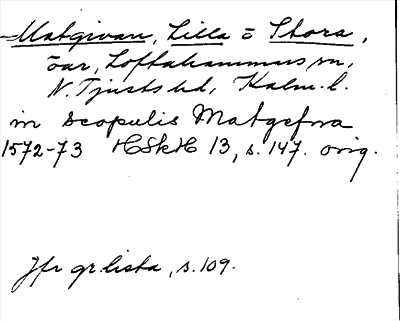 Matgivan, Lilla o Stora,
öar, Loftahammars sn,
N. Tjusts hd, Kalm. l.
in scopulis Matgefwa
1572-73 HSkH 13, s. 147. orig.
Jfr grlista, s. 109.